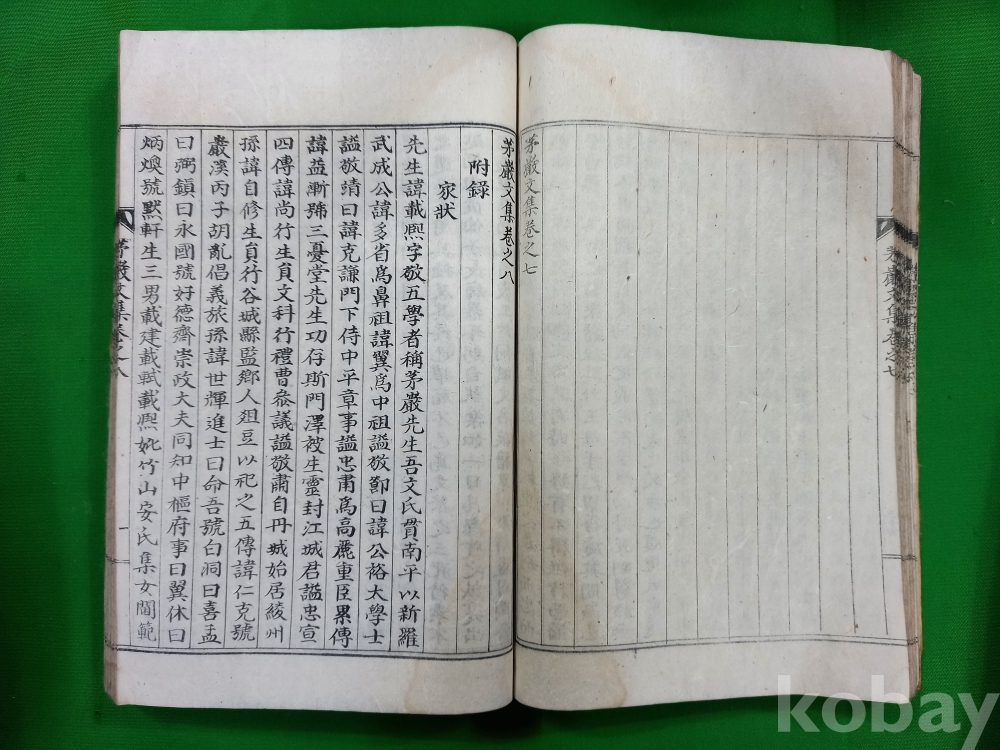 茅巖文集卷之七
茅巖文集卷之七
茅巖文集卷之八
附錄
家狀
先生諱載熙字敬五學者稱茅巖先生吾文氏貫南平以新羅
武成公諱多省爲鼻祖諱翼爲中祖謚敬節曰諱公裕太學士
謚敬靖曰諱克謙門下侍中平章事謚忠肅爲高麗重臣累傳
諱益漸號三憂堂先生功存斯門澤被生靈封江城君謚忠宣
四傳諱尚行生員文科行禮曹叅議謚敬肅自丹城始居綾州
孫諱自修生員行谷城縣監鄉人俎豆以祀之五傳諱仁克號
巖溪丙子胡亂倡義旅孫諱世輝進士曰命吾號白洞曰喜孟
曰弼鎮曰永國號好德齋崇政大夫同知中樞府事曰翼休曰
炳煥號默軒生三男載建載軾載熙妣竹山安氏集女閫範
茅巖文集卷之八
一
kobay